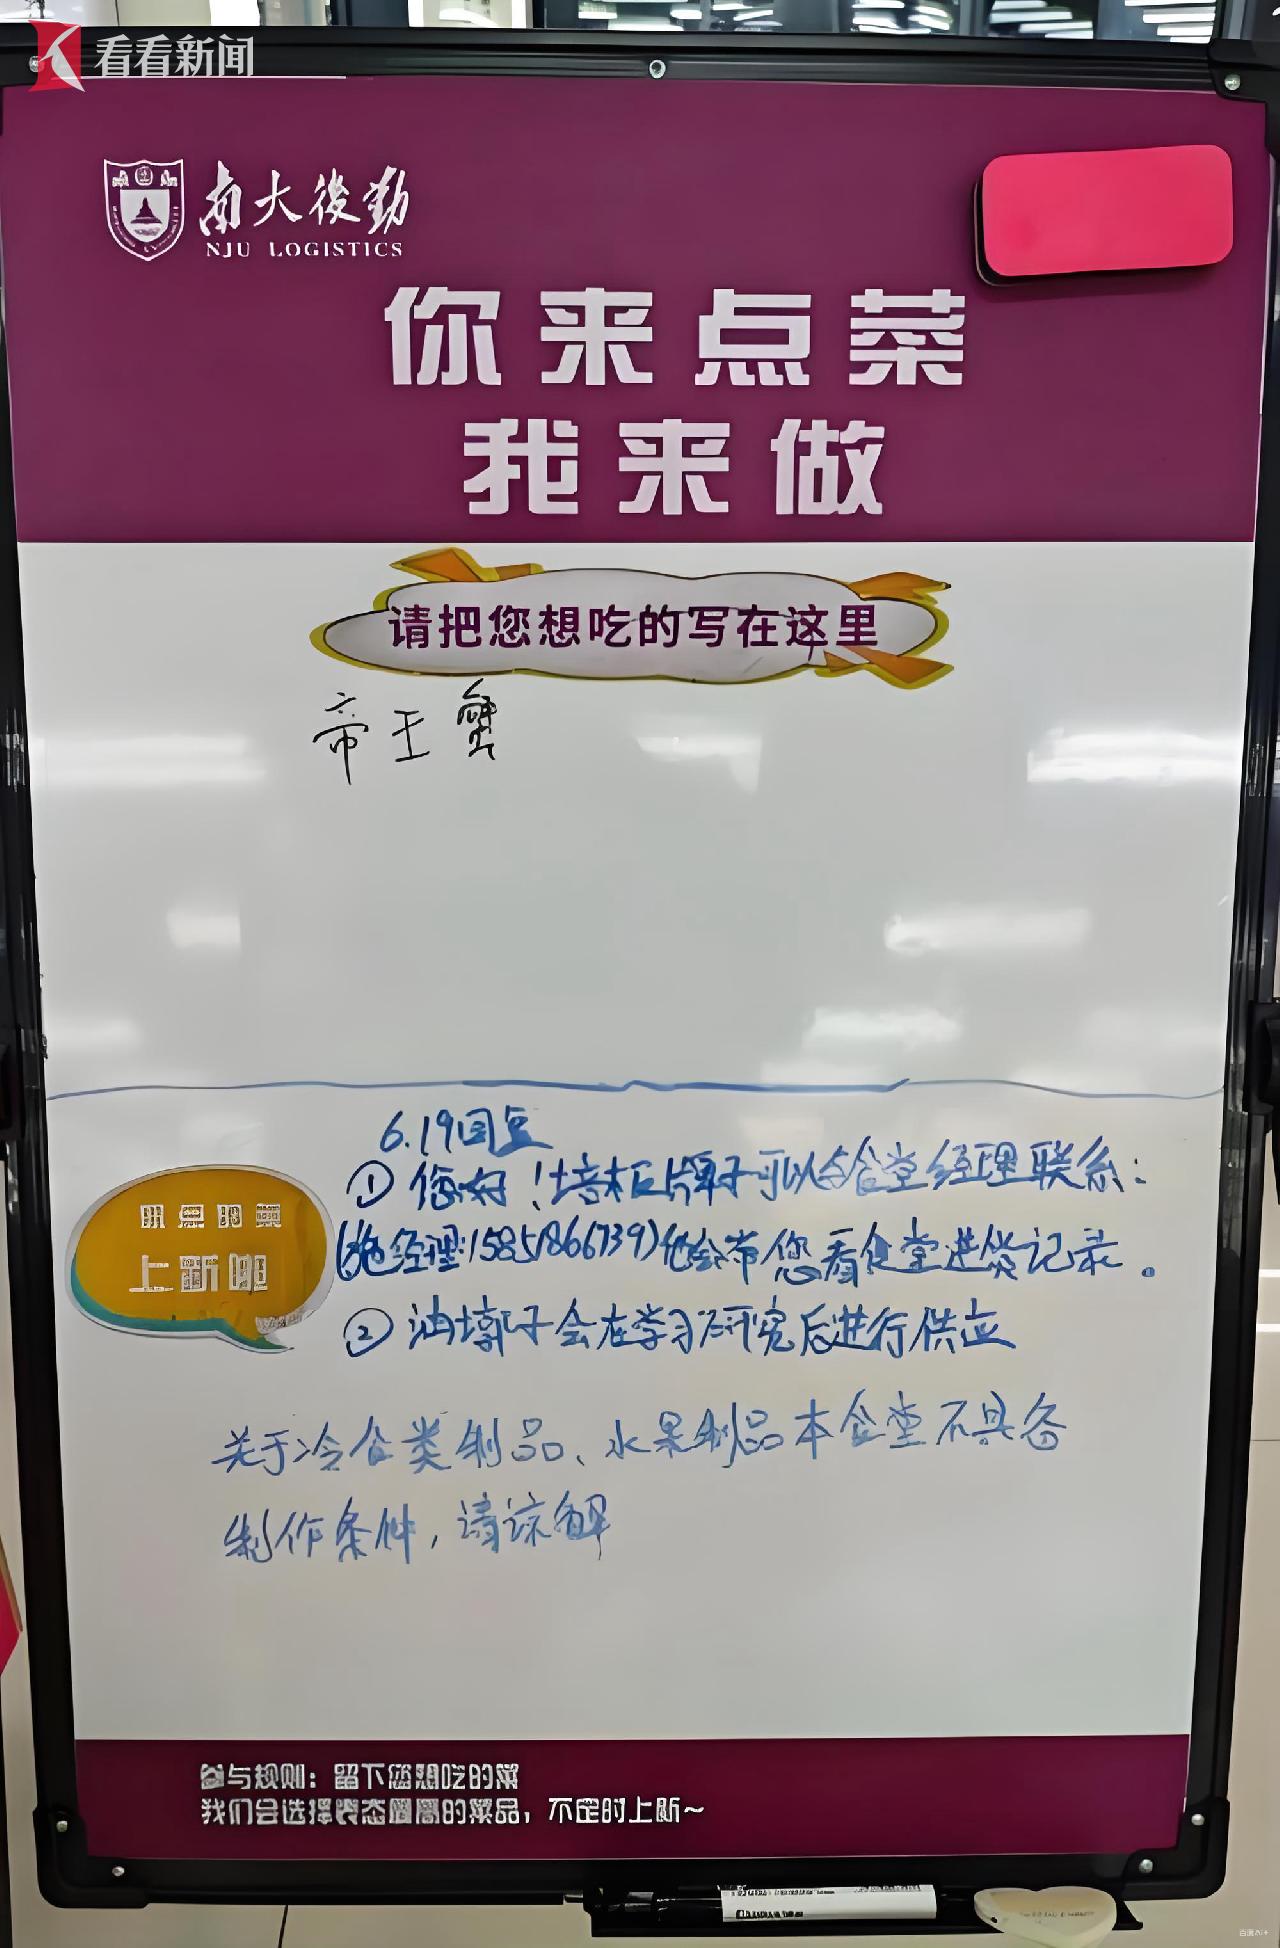 看看新闻
南大後勤
NJU LOGISTICS
你来点菜
我来做
请把您想吃的写在这里
帝王蟹
6.19回复
①您好!培根牌子可以与食堂经理联系:
经理:15851866739)他会带您看食堂进货记录。
②油墩子会在学习研究后进行供应
关于冷食类制品、水果制品本食堂不具备
制作条件,请谅解
上新啦
参与规则:留下您想吃的菜
我们会选择的菜品,不定时上新~